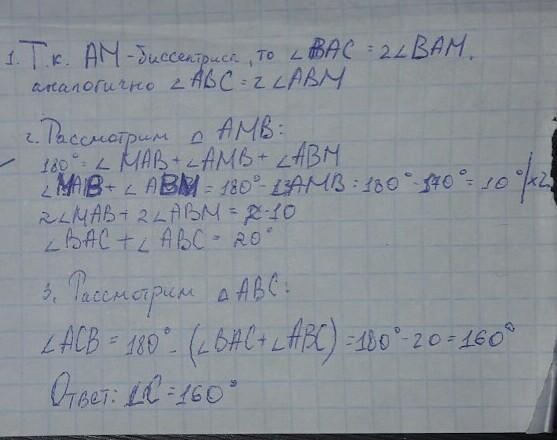 1. Т.к. AM - биссектриса, то ∠BAC = 2∠BAM,
аналогично ∠ABC = 2∠ABM
2. Рассмотрим △ AMB:
180° = ∠MAB + ∠AMB + ∠ABM
∠MAB + ∠ABM = 180° - ∠AMB = 180° - 170° = 10° /×2
2∠MAB + 2∠ABM = 2·10
∠BAC + ∠ABC = 20°
3. Рассмотрим △ABC:
∠ACB = 180° - (∠BAC + ∠ABC) = 180° - 20 = 160°
Ответ: ∠C = 160°